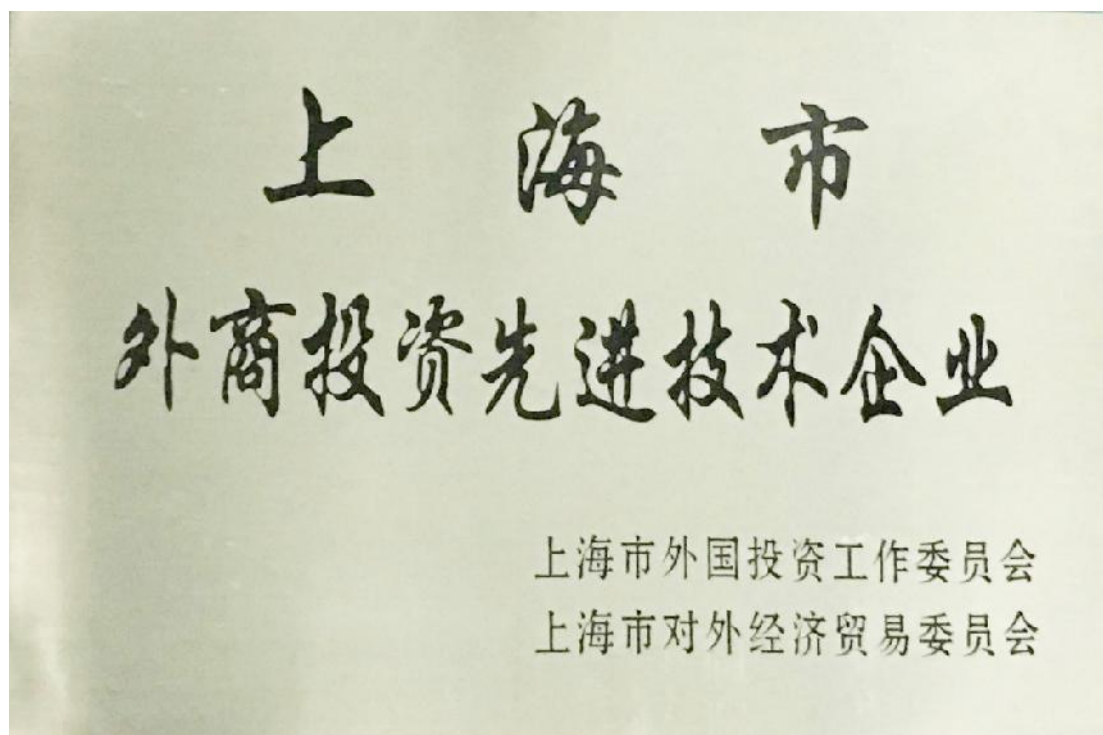 上海市
外商投资先进技术企业
上海市外国投资工作委员会
上海市对外经济贸易委员会